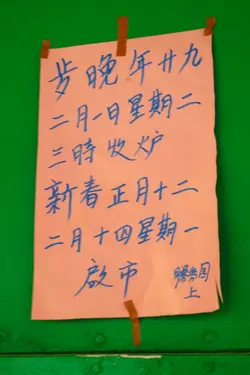 步晚年廿九
二月一日星期二
三時收炉
新春正月十二
二月十四星期一
啟市
勝香园
上